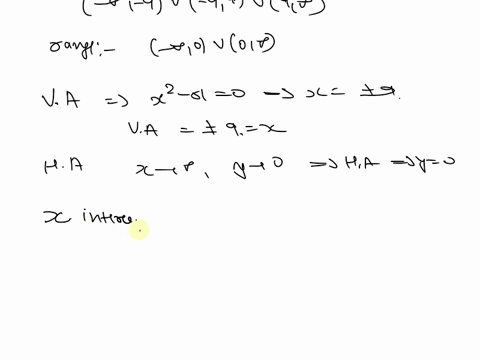 (-∞,-9) ∪ (-9,9) ∪ (9,∞)
range:- (-∞,0) ∪ (0,∞)
V.A ⇒ x²-81=0 → x= ±9.
V.A = ±9.=x
H.A x→∞, y→0 ⇒ H.A ⇒ y=0
x interc.